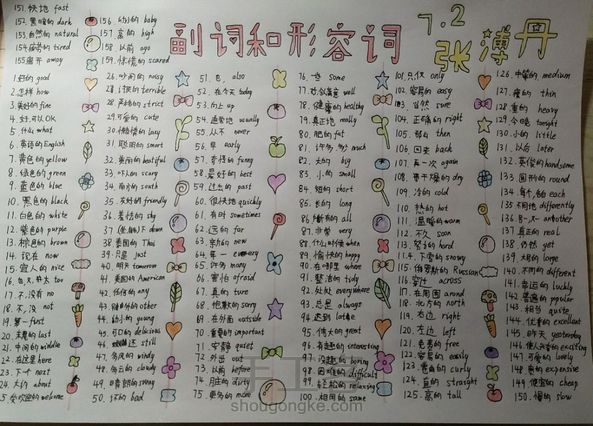 151. 快地 fast
152. 黑暗的 dark
153. 自然的 natural
154. 疲劳的 tired
155. 离开 away
156. 幼小的 baby
157. 高的 high
158. 以前 ago
159. 惊慌的 scared
副词和形容词
7.2
张薄丹
1. 好的 good
2. 怎样 how
3. 美好的 fine
4. 好,可以 OK
5. 什么 what
6. 英语的 English
7. 黄色的 yellow
8. 绿色的 green
9. 蓝色的 blue
10. 黑色的 black
11. 白色的 white
12. 紫色的 purple
13. 棕色的 brown
14. 现在 now
15. 宜人的 nice
16. 也,太 too
17. 不,没有 no
18. 不,没 not
19. 第一 first
20. 末尾的 last
21. 中间的 middle
22. 在这里 here
23. 下一个 next
24. 大约 about
25. 受欢迎的 welcome
26. 吵闹的 noisy
27. 可怕的 terrible
28. 严格的 strict
29. 可爱的 cute
30. 懒惰的 lazy
31. 聪明的 smart
32. 美丽的 beautiful
33. 吓人的 scary
34. 南方的 south
35. 友好的 friendly
36. 害怕的 shy
37. down
38. 泰国的 Thai
39. 只是 just
40. 明天 tomorrow
41. 美国的 American
42. 任何的 any
43. 其他的 other
44. 幼小的 young
45. 可口的 delicious
46. 还 still
47. 多风的 windy
48. 多云的 cloudy
49. 晴朗的 sunny
50. 坏的 bad
51. 也 also
52. 在今天 today
53. 向上 up
54. 通常地 usually
55. 从不 never
56. 早 early
57. 奇怪的 funny
58. 最好的 best
59. 过去的 past
60. 很快地 quickly
61. 有时 sometimes
62. 远的 far
63. 新的 new
64. every
65. 许多的 many
66. 害怕 afraid
67. 真的 true
68. 抱歉的 sorry
69. 在外面 outside
70. 重要的 important
71. 安静 quiet
72. 外出 out
73. 以前 before
74. 脏的 dirty
75. 更多的 more
76. 一些 some
77. 令人满意 well
78. 健康的 healthy
79. 真正地 really
80. 肥的 fat
81. 许多,多少 much
82. 大的 big
83. 小的 small
84. 短的 short
85. 长的 long
86. 所有的 all
87. 非常 very
88. 什么时候 when
89. 愉快的 happy
90. 在哪里 where
91. 整洁的 tidy
92. 处处 everywhere
93. 总是 always
94. 迟到 late
95. 伟大的 great
96. 有趣的 interesting
97. 没趣的 boring
98. 困难的 difficult
99. 轻松的 relaxing
100. 相同的 same
101. 只,仅 only
102. 容易的 easy
103. 当然 sure
104. 正确的 right
105. 那么 then
106. 回来 back
107. 再一次 again
108. 干燥的 dry
109. 冷的 cold
110. 热的 hot
111. 温暖的 warm
112. 不久 soon
113. 努力的 hard
114. 下雪的 snowy
115. 俄罗斯的 Russian
116. 穿过 across
117. 在周围 around
118. 北方的 north
119. 右边 right
120. 左边 left
121. 免费的 free
122. 容易的 easily
123. 完美的 perfect
124. 直的 straight
125. 高的 tall
126. 中等的 medium
127. 瘦的 thin
128. 重的 heavy
129. 今晚 tonight
130. 小的 little
131. 以后 later
132. 英俊的 handsome
133. 圆形的 round
134. 每个,各自 each
135. 不同地 differently
136. 另一 another
137. 真正的 real
138. 仍然 yet
139. 大的 large
140. 不同的 different
141. 幸运的 lucky
142. 普遍的 popular
143. 相当 quite
144. 优秀的 excellent
145. 昨天 yesterday
146. 使人兴奋的 exciting
147. 可爱的 lovely
148. 贵的 expensive
149. 便宜的 cheap
150. 慢的 slow
shougongke.com